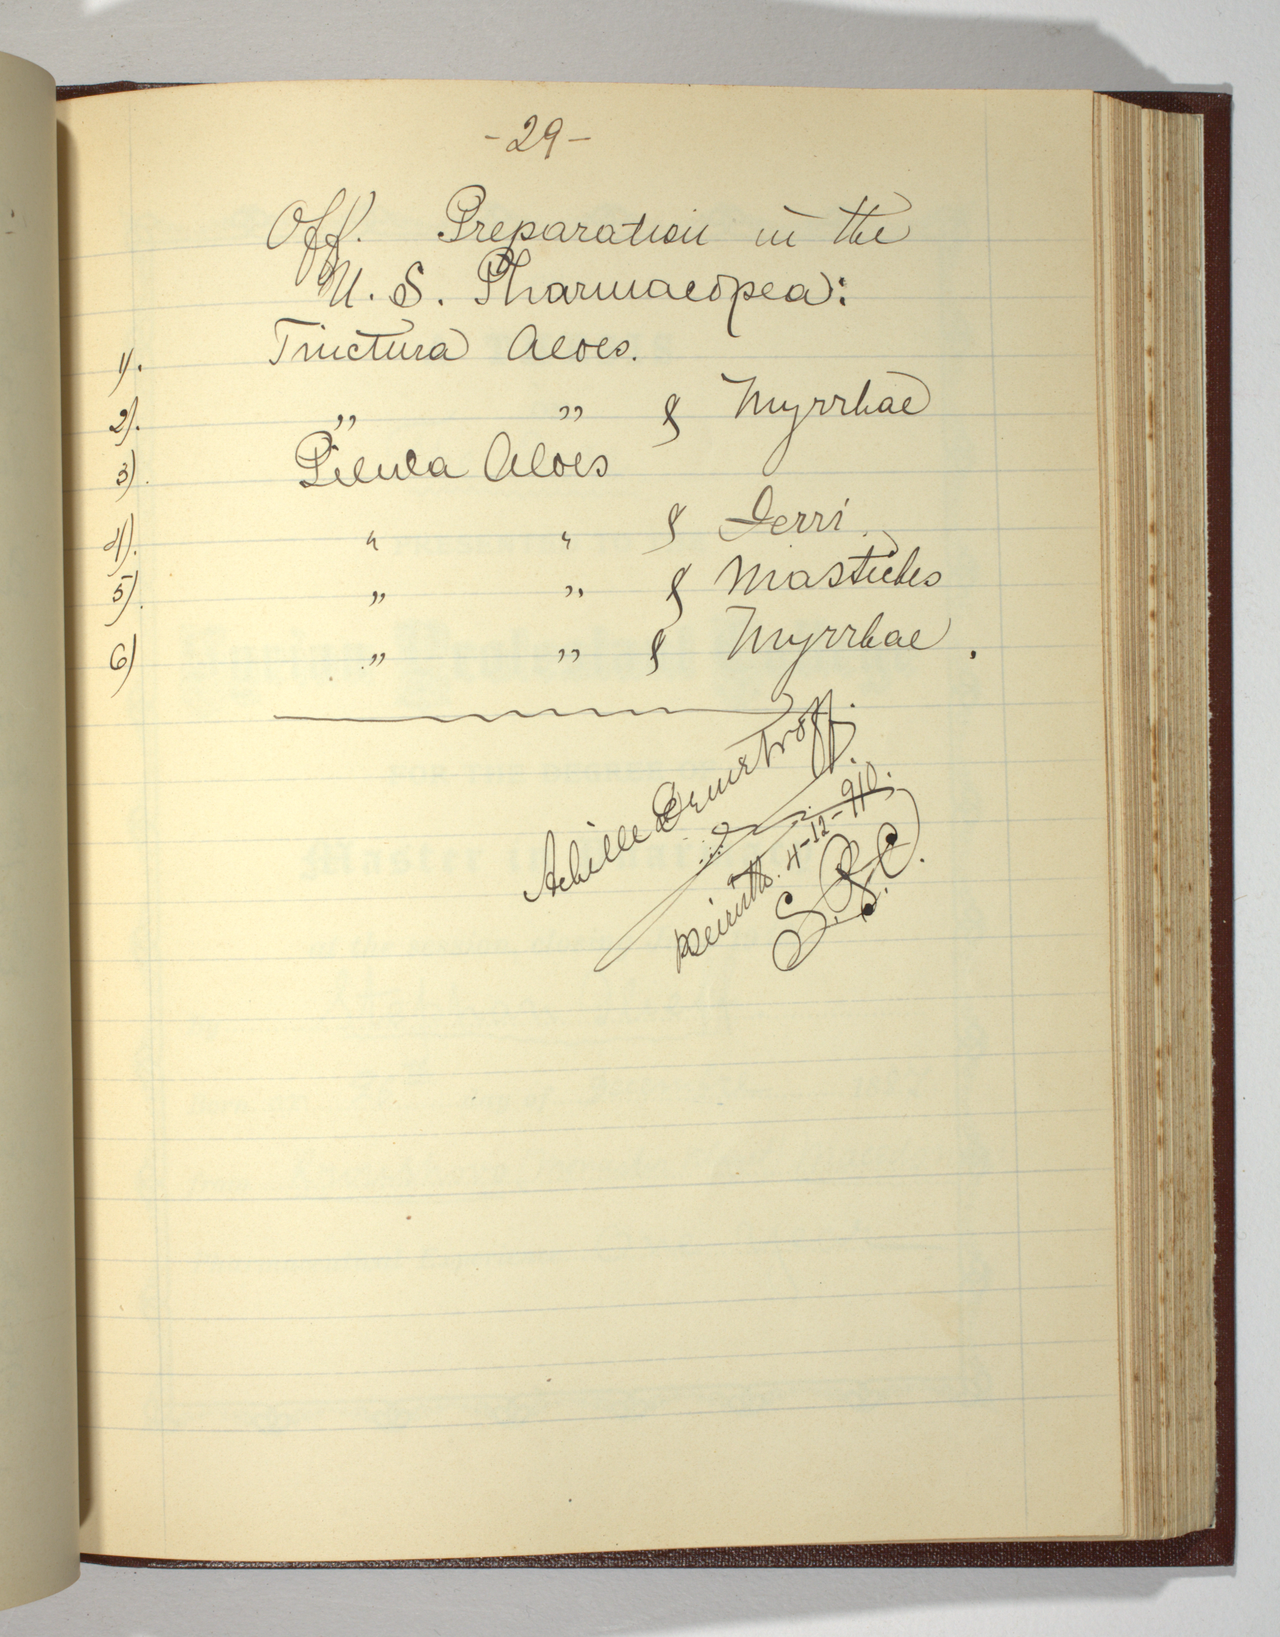 -29-
Off. Preparation in the
U. S. Pharmacopea:
1). Tinctura Aloes.
2). " " & Myrrhae
3). Pilula Aloes
4). " " & Ferri.
5). " " & Mastiches
6) " " & Myrrhae.
Achille
Beiruth. 4-12-910.
S.P.C.